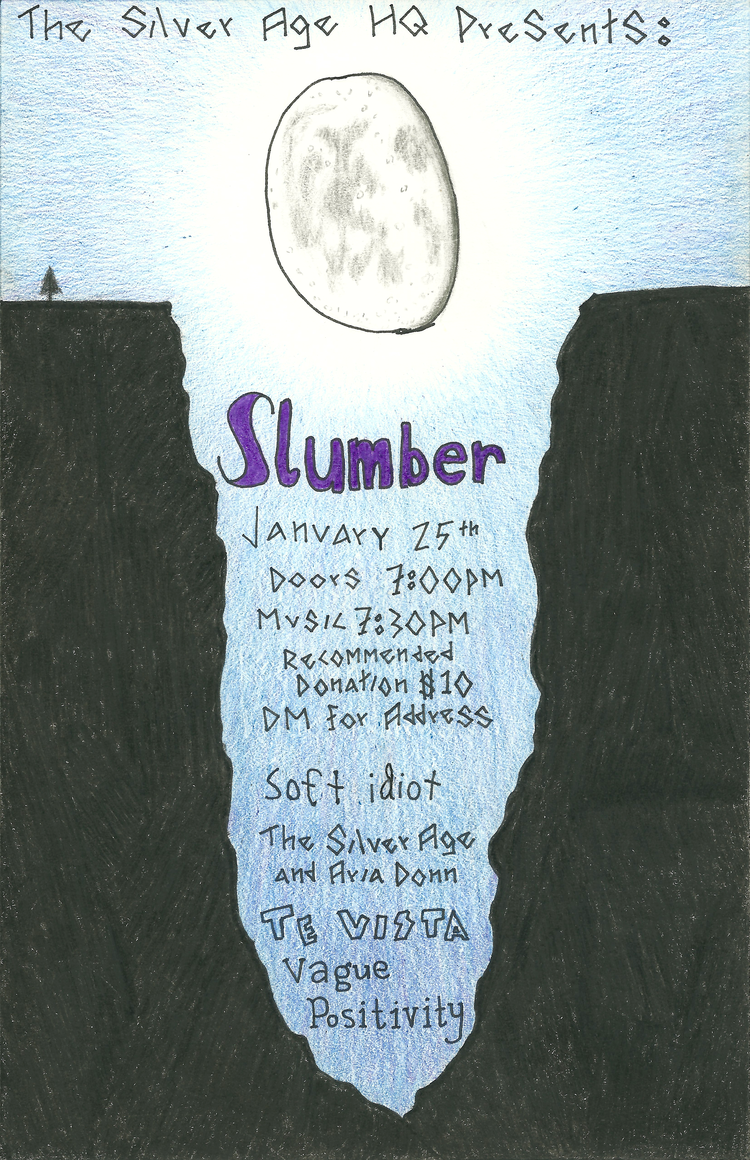 The Silver Age HQ Presents:
Slumber
January 25th
Doors 7:00PM
Music 7:30PM
Recommended
Donation $10
DM For Address
Soft idiot
The Silver Age
and Aria Donn
TE VISTA
Vague
Positivity